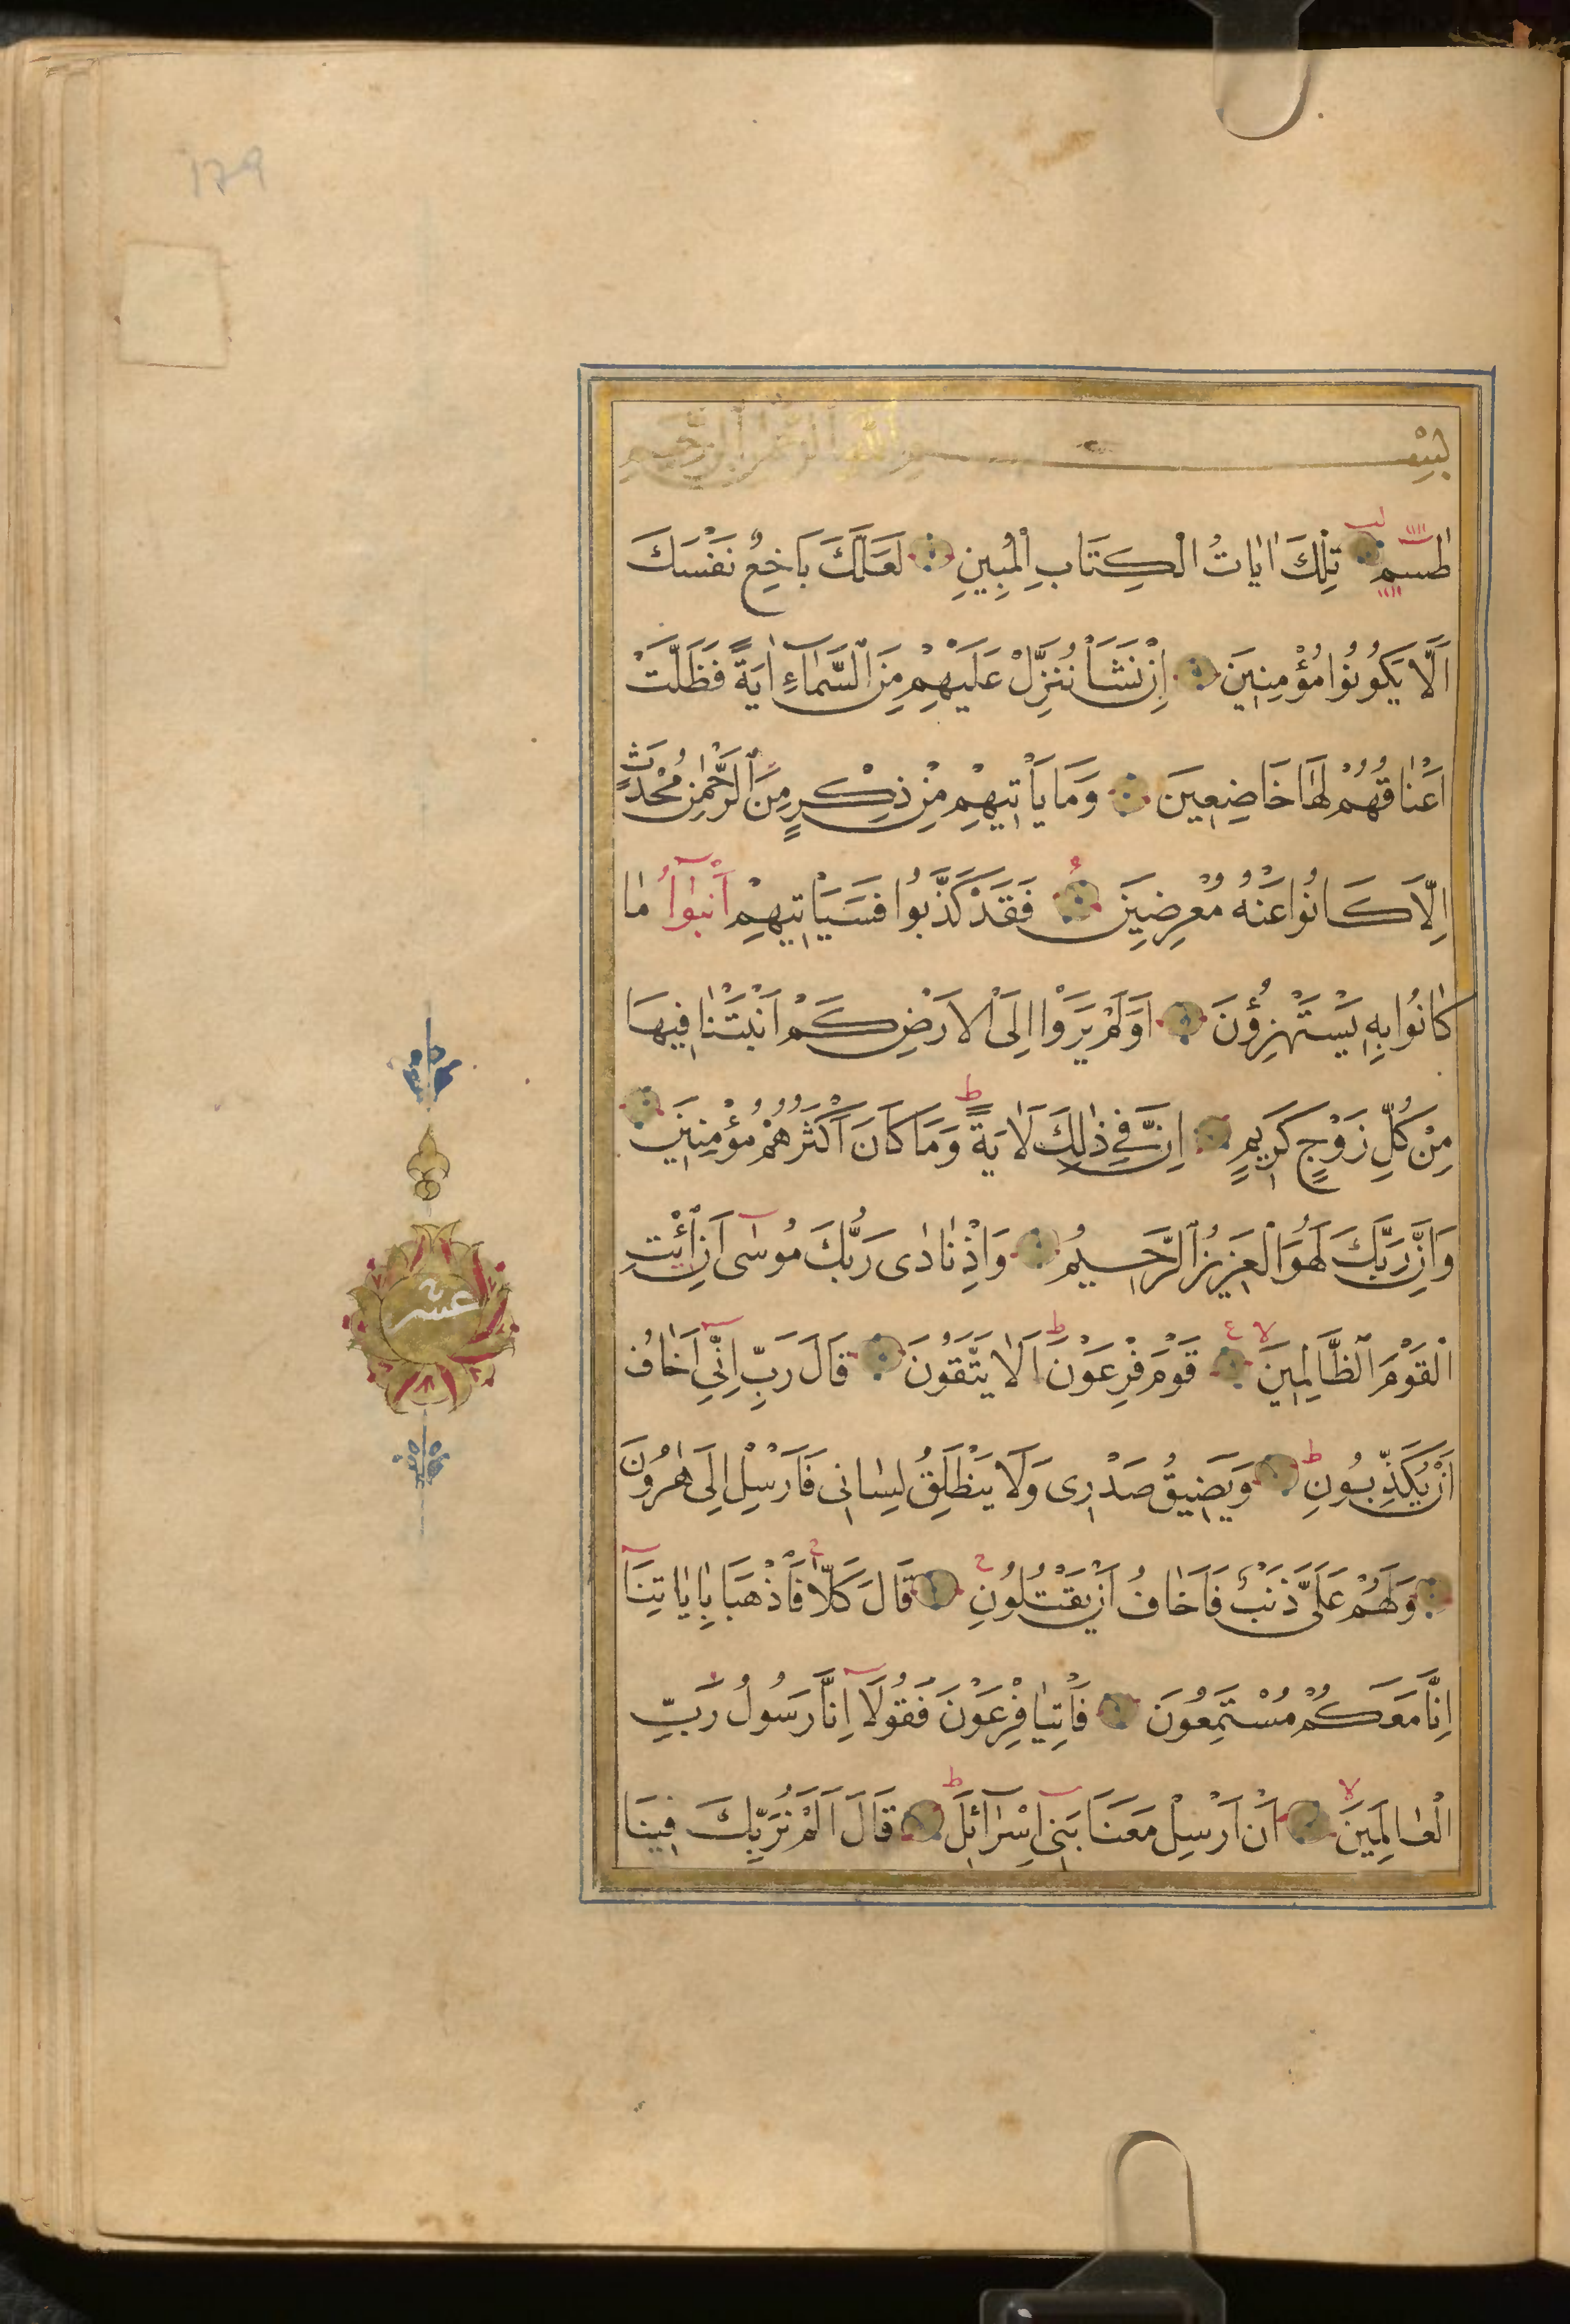 179
بِسْمِ اللّٰهِ الرَّحْمٰنِ الرَّحِيمِ
طٰسم تِلْكَ اٰيَاتُ الْكِتَابِ الْمُبِينِ لَعَلَّكَ بَاخِعٌ نَفْسَكَ
اَلَّا يَكُونُوا مُؤْمِنِينَ اِنْ نَشَأْ نُنَزِّلْ عَلَيْهِمْ مِنَ السَّمَاءِ اٰيَةً فَظَلَّتْ
اَعْنَاقُهُمْ لَهَا خَاضِعِينَ وَمَا يَأْتِيهِمْ مِنْ ذِكْرٍ مِنَ الرَّحْمٰنِ مُحْدَثٍ
اِلَّا كَانُوا عَنْهُ مُعْرِضِينَ فَقَدْ كَذَّبُوا فَسَيَأْتِيهِمْ اَنْبٰٓوٓاُ مَا
كَانُوا بِهِ يَسْتَهْزِؤُنَ اَوَلَمْ يَرَوْا اِلَى الْاَرْضِ كَمْ اَنْبَتْنَا فِيهَا
مِنْ كُلِّ زَوْجٍ كَرِيمٍ اِنَّ فِي ذٰلِكَ لَاٰيَةً ط وَمَا كَانَ اَكْثَرُهُمْ مُؤْمِنِينَ
وَاِنَّ رَبَّكَ لَهُوَ الْعَزِيزُ الرَّحِيمُ وَاِذْ نَادٰى رَبُّكَ مُوسٰى اَنِ ائْتِ
الْقَوْمَ الظَّالِمِينَ لا ع قَوْمَ فِرْعَوْنَ ط اَلَا يَتَّقُونَ قَالَ رَبِّ اِنِّي اَخَافُ
اَنْ يُكَذِّبُونِ ط وَيَضِيقُ صَدْرِى وَلَا يَنْطَلِقُ لِسَانِى فَاَرْسِلْ اِلَى هٰرُونَ
وَلَهُمْ عَلَىَّ ذَنْبٌ فَاَخَافُ اَنْ يَقْتُلُونِ ج قَالَ كَلَّا ج فَاذْهَبَا بِاٰيَاتِنَا
اِنَّا مَعَكُمْ مُسْتَمِعُونَ فَاْتِيَا فِرْعَوْنَ فَقُولَا اِنَّا رَسُولُ رَبِّ
الْعَالَمِينَ لا اَنْ اَرْسِلْ مَعَنَا بَنِي اِسْرَائِلَ ط قَالَ اَلَمْ نُرَبِّكَ فِينَا
عشر